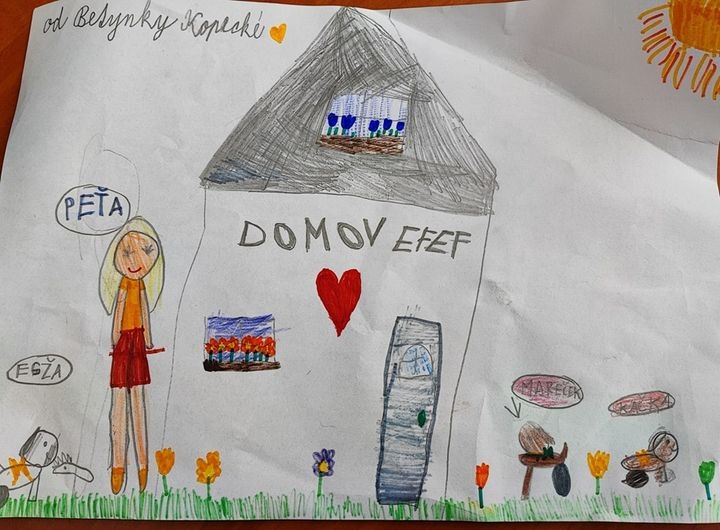 od Betynky Kopecké
PEŤA
DOMOV EFEF
EGŽA
MAREČEK
KAČKA